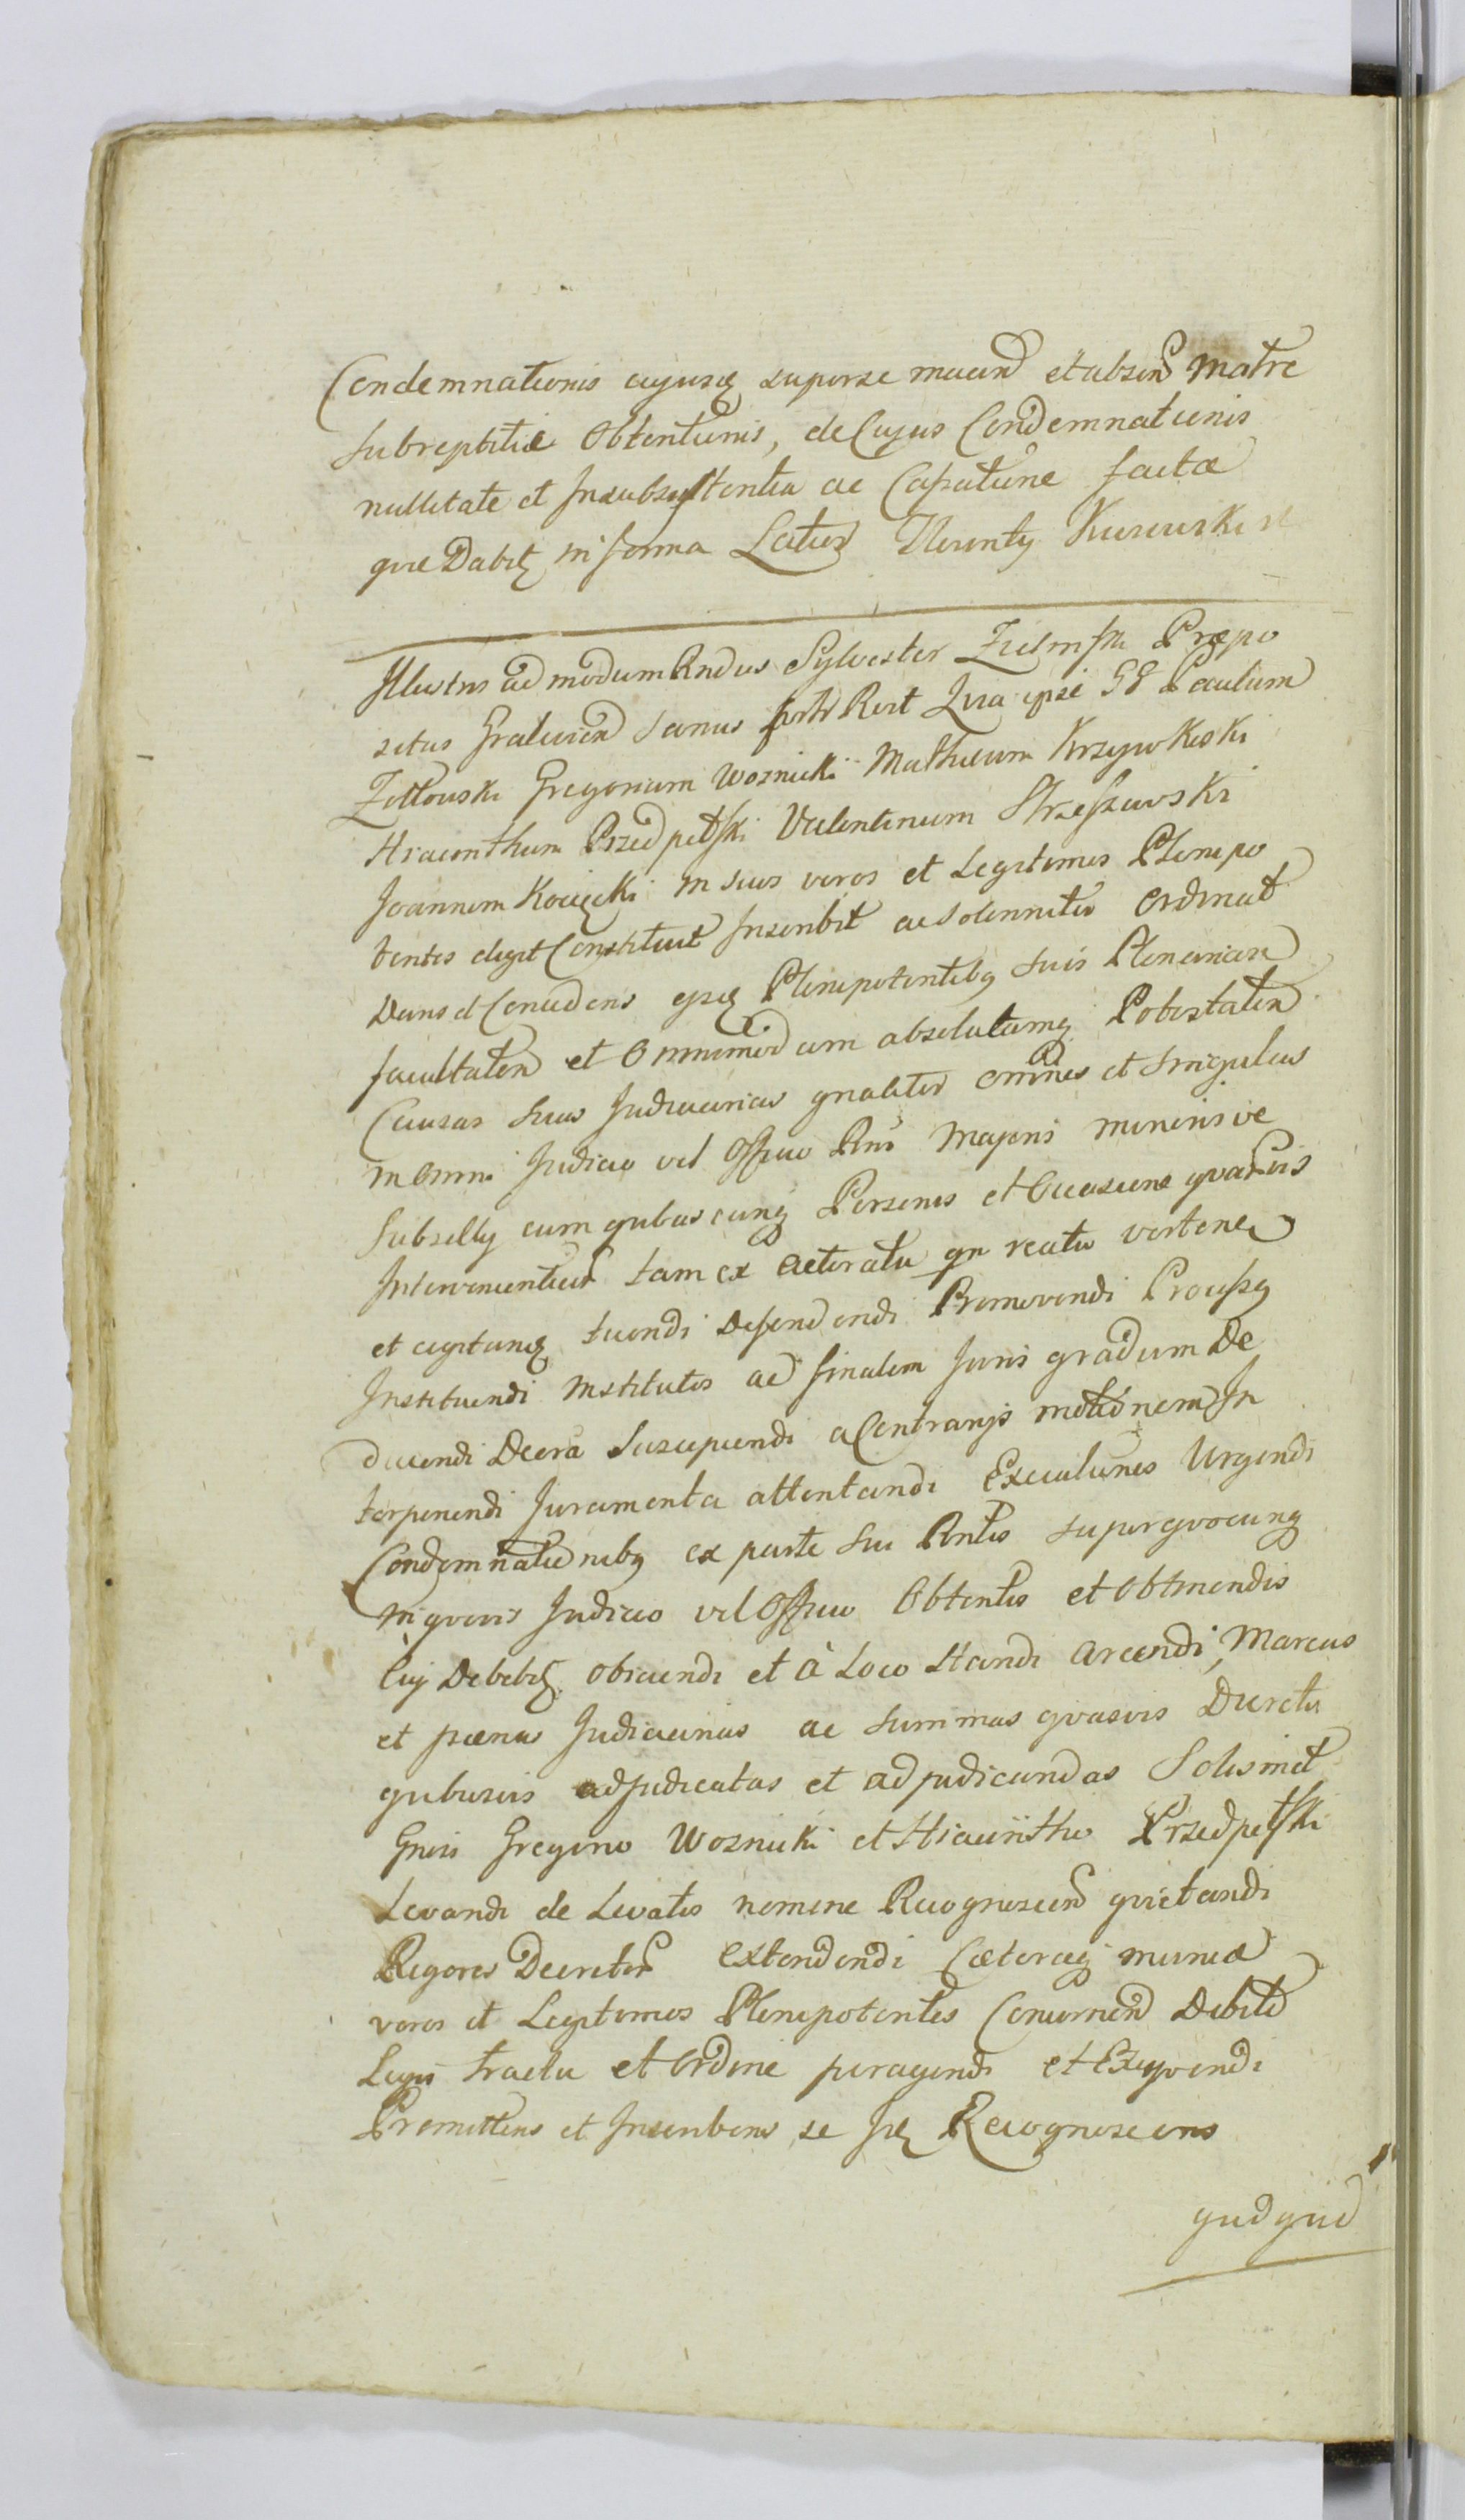 Condemnationis ejusq super se macend et absend Matre
subreptitiae Obtentionis, de Cujus Condemnationis
nullitate et Insubsistentia ac Cassatione facta
que Dabitz in forma Latius
Illustris ad modum Rndus Sylvester Zielinski Præpo
situs Gralevien sanus Rect Quia ipse GG Paulum
Zottowski Gregorium Woznicki Mathæum Krzywkoski
Hiacinthum Przedpełski Valentinum Strzeszewski
Joannem Kocięcki in suos veros et Legitimos Plenipo
tentes elegit Constituit Inscribit ac Solenniter Ordinat
Dans et Concedens ejsq Plenipotentibq suis Plenariam
facultatem et Omnimodam absolutamq Potestatem
Causas suas Judiciarias gnaliter omnes et singulas
in Omni Judicio vel Officio Rni Majoris minoris ve
Subselly cum quibuscunq Personis et Occasione quavis
Intervenientium tam ex Actoratu qn reatu verten
et agitanq tuendi Defendendi Promovendi Processq
Instituendi institutos ad finalem Juris gradum De
ducendi Decra Suscipiendi a Contrarijs motionem In
terponendi Juramenta attentandi Executiones Urgendi
Condemnationibq ex parte sui Rntis super quocunq
in quovis Judicio vel Officio Obtentis et Obtinendis
Cuj Debebitz Obiciendi et à Loco standi Arcendi, Marcas
et pænas Judiciarias ac summas quasvis Decretis
quibusvis adjudicatas et adjudicandas Solismet
Gnsis Gregorio Woznicki et Hiacintho Przedpełski
Levandi de Levatis nomine Recognoscend quietandi
Rigores Decretor Extendendi Cæteraq munia
veros et Legitimos Plenipotentes Concernend Debite
Legis tractu et Ordine peragendi et Exequendi
Promittens et Inscribens se Recognoscens